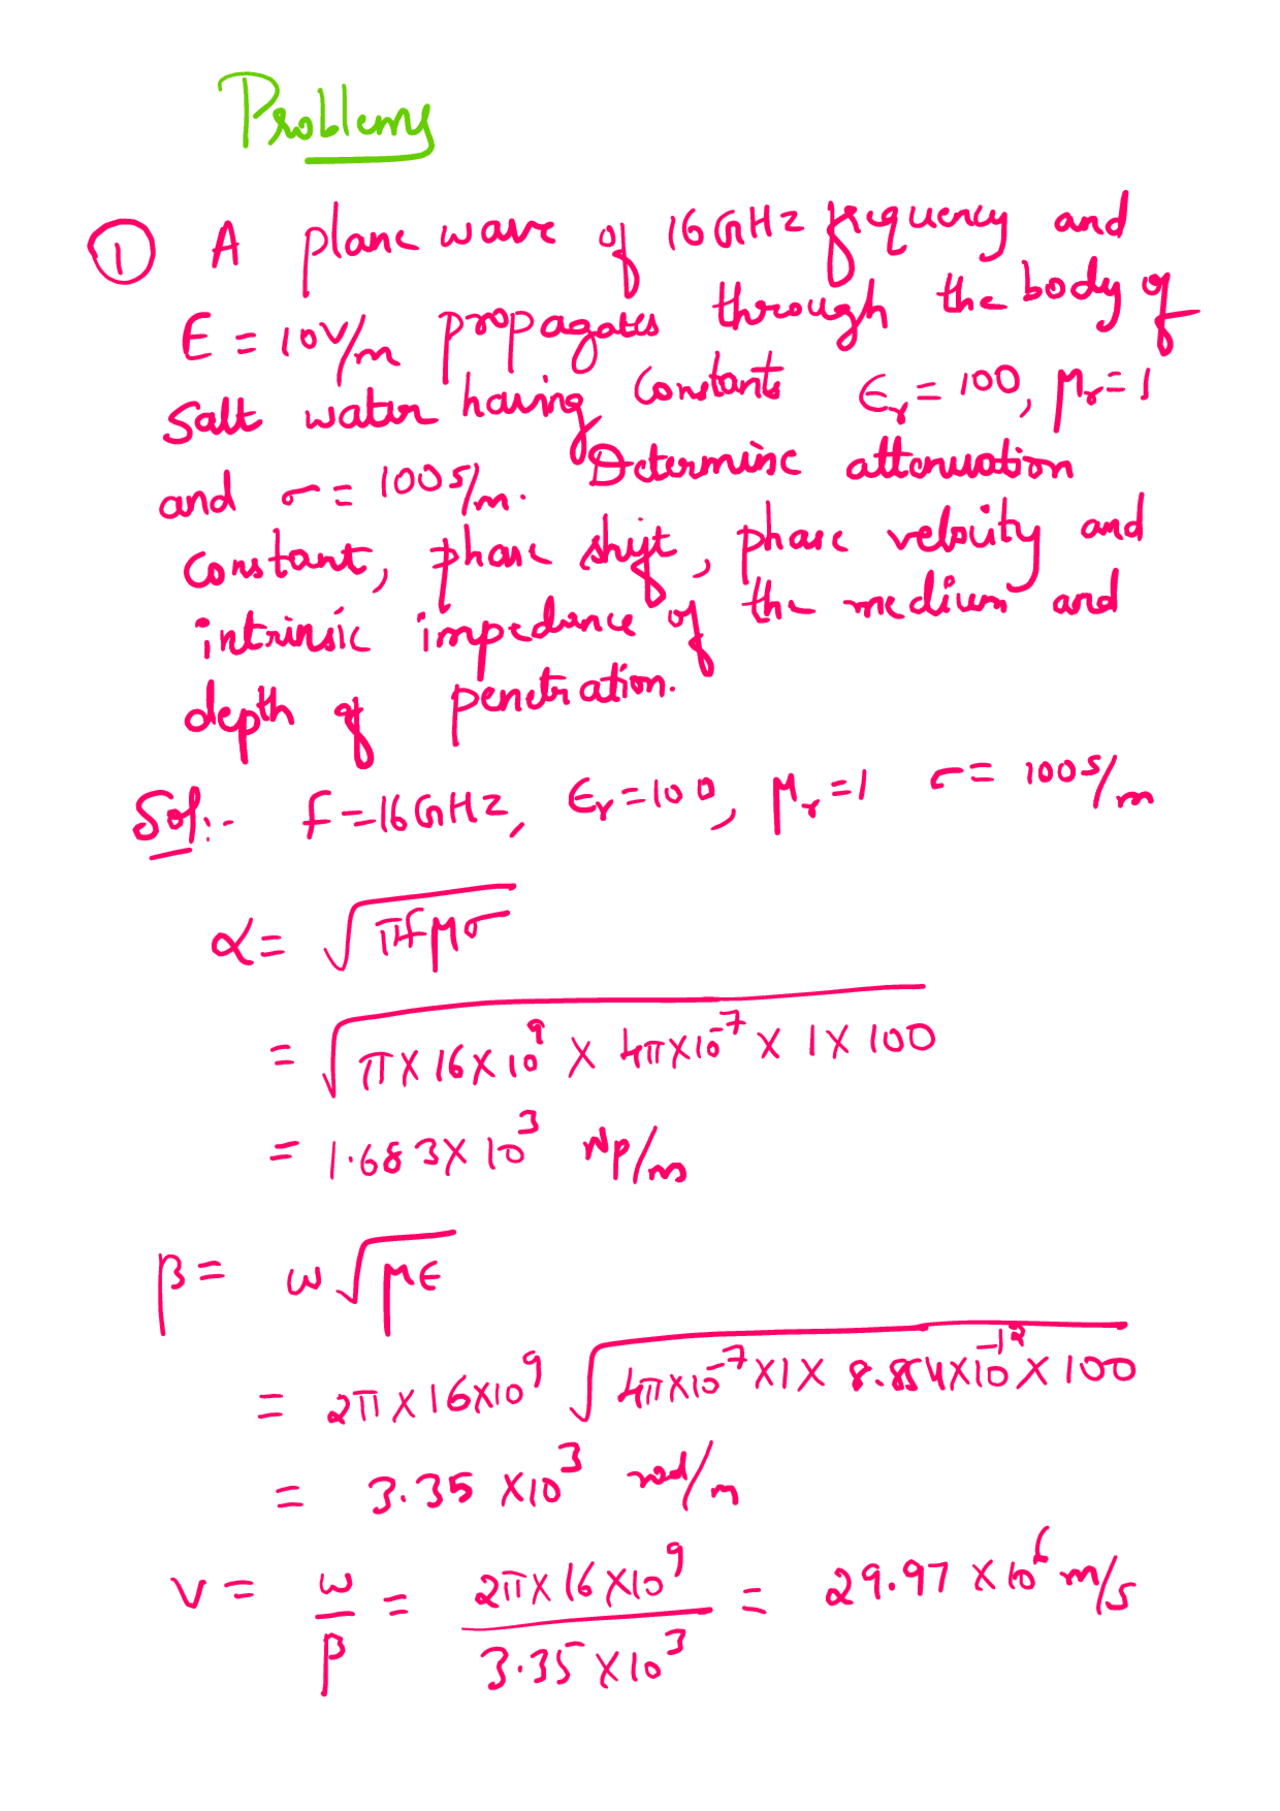 Problems
① A plane wave of 16GHz frequency and
E = 10V/m propagates through the body of
salt water having constants εr = 100, μr = 1
and σ = 100S/m. Determine attenuation
constant, phase shift, phase velocity and
intrinsic impedance of the medium and
depth of penetration.
Sol:- f = 16GHz, εr = 100, μr = 1 σ = 100S/m
α = √(πfμσ)
= √(π × 16 × 10⁹ × 4π×10⁻⁷ × 1 × 100)
= 1.683 × 10³ Np/m
β = ω√(με)
= 2π × 16×10⁹ √(4π×10⁻⁷ ×1× 8.854×10⁻¹² × 100)
= 3.35 ×10³ rad/m
v = ω/β = (2π × 16 ×10⁹)/(3.35 ×10³) = 29.97 × 10⁶ m/s